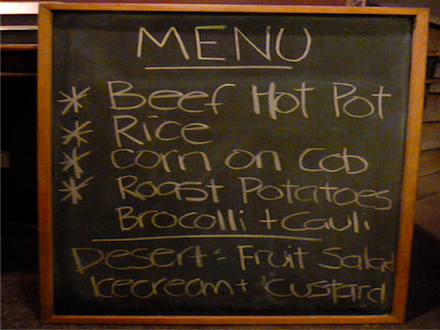 MENU
* Beef Hot Pot
* Rice
* corn on cob
* Roast Potatoes
Brocolli + Cauli
Desert = Fruit Salad
Icecream + Custard